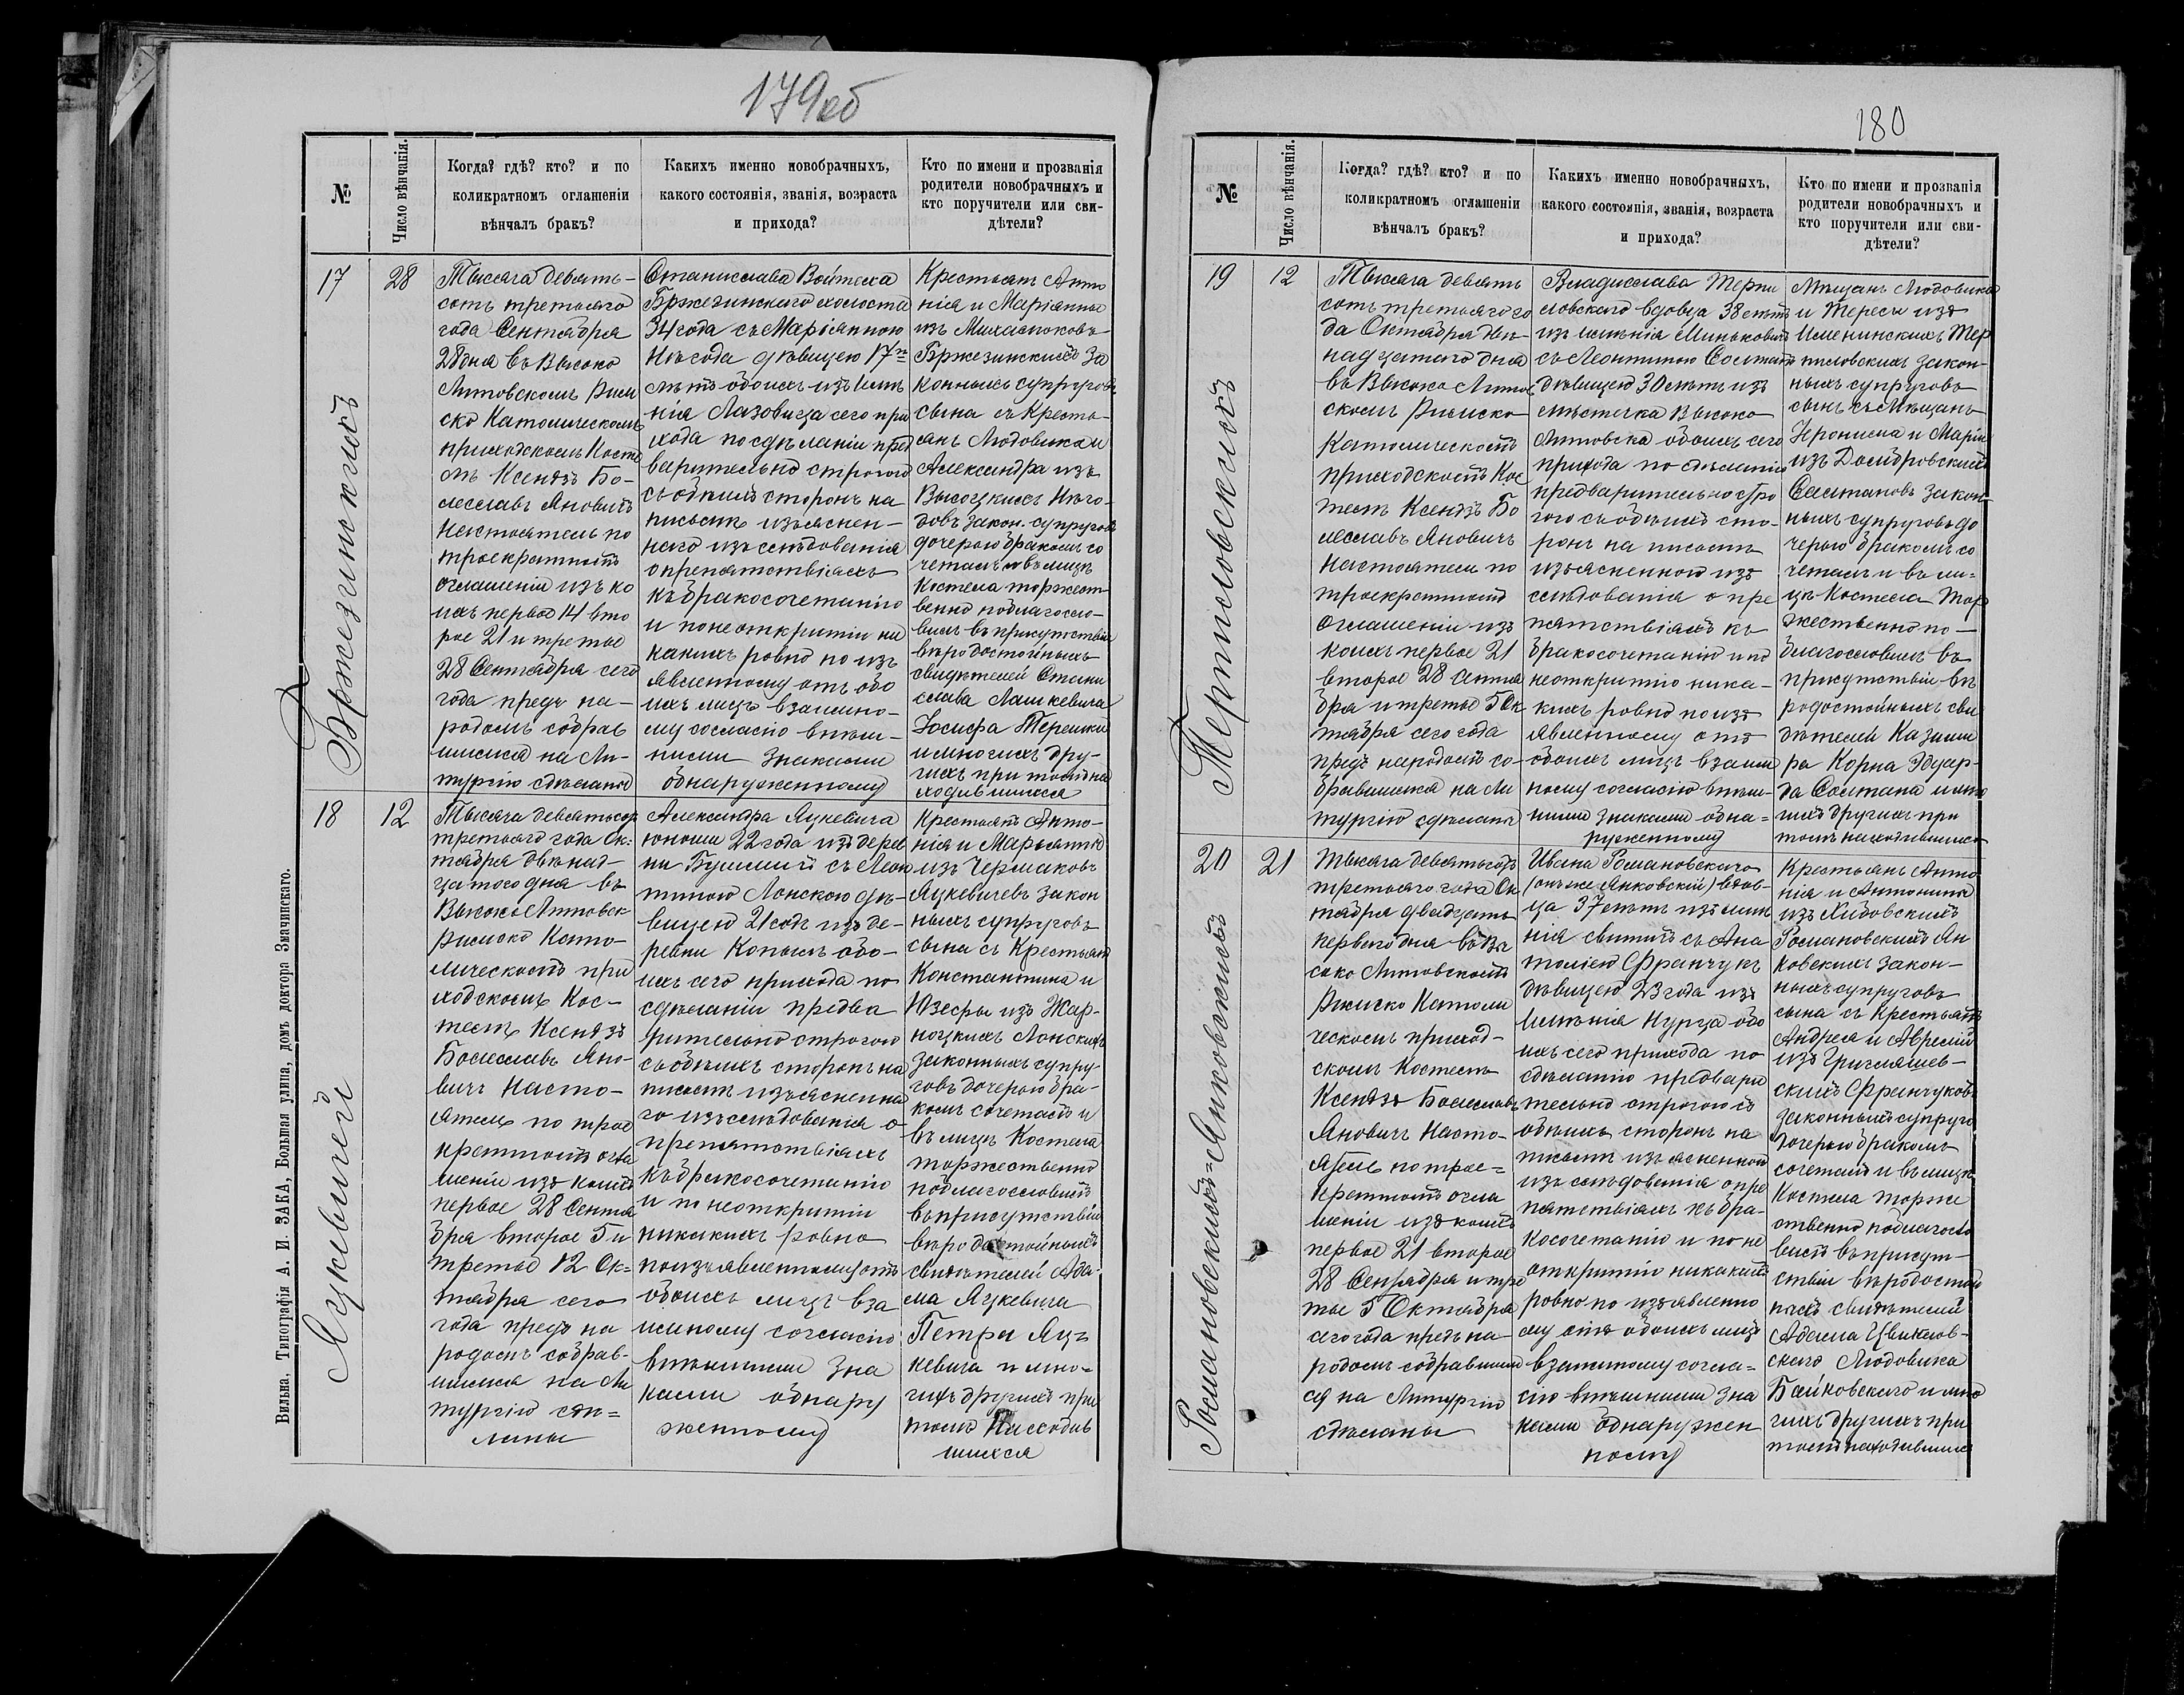 179об
№
Число вѣнчанія.
Когда? гдѣ? кто? и по
коликратномъ оглашеніи
вѣнчалъ бракъ?
Какихъ именно новобрачныхъ,
какого состоянія, званія, возраста
и прихода?
Кто по имени и прозванія
родители новобрачныхъ и
кто поручители или сви-
дѣтели?
17
28
Бржезинскихъ
Тысяча девять-
сотъ третьяго
года Сентября
28 дня въ Высоко
Литовскомъ Рим
ско Католическомъ
приходскомъ Косте
лѣ Ксендзъ Бо-
леславъ Яновичъ
Настоятель по
троекратномъ
оглашеніи изъ ко
ихъ первое 14 вто
рое 21 и третье
28 Сентября сего
года предъ на-
родомъ собрав
шимся на Ли-
тургію сдѣланы
Станислава Войтеха
Бржезинскаго холоста
34 года съ Маріанною
Нѣгода дѣвицею 17
лѣтъ обоихъ изъ имѣ
нія Лазовица сего при
хода по сдѣланіи пред
варительно строгого
съ обѣихъ сторонъ на
письмѣ изъяснен-
наго изслѣдованія
о препятствіяхъ
къ бракосочетанію
и по неоткрытіи ни
какихъ ровно по изъ
явленному отъ обо
ихъ лицъ взаимно-
му согласію внѣш-
ними знаками
обнаруженному
Крестьянъ Анто
нія и Маріанны
изъ Михалюковъ
Бржезинскихъ за
конныхъ супруговъ
сына съ Кресть-
янъ Людовика и
Александра изъ
Высоцкихъ Нѣго-
довъ закон. супруговъ
дочерью бракомъ со
четалъ и въ лицѣ
Костела торжест
венно поблагосло-
вилъ въ присутствіи
вѣродостойныхъ
свидѣтелей Стани
слава Лашкевича
Іосифа Терешки
и многихъ дру-
гихъ при томъ на
ходившихся
18
12
Яцкевичей
Тысяча девятьсот
третьяго года Ок-
тября двѣнад-
цатого дня въ
Высоко Литовск
Римско Като-
лическомъ при
ходскомъ Кос-
телѣ Ксендзъ
Болеславъ Яно-
вичъ Насто-
ятель по трое
кратномъ огла
шеніи изъ коихъ
первое 28 Сентя
бря второе 5 и
третье 12 Ок-
тября сего
года предъ на
родомъ собрав-
шимся на Ли
тургію сдѣ-
ланы
Александра Яцкевича
юноши 22 года изъ дерев
ни Бушмичи съ Леон
тиною Лонскою дѣ-
вицею 21 годъ изъ де-
ревни Копылъ обо-
ихъ сего прихода по
сдѣланіи предва
рительно строгого
съ обѣихъ сторонъ на
письмѣ изъясненна
го изслѣдованія о
препятствіяхъ
къ бракосочетанію
и по неоткрытіи
никакихъ ровно
по изъявленному отъ
обоихъ лицъ вза
имному согласію
внѣшними зна
ками обнару
женному
Крестьянъ Анто-
нія и Маріанны
изъ Чермаковъ
Яцкевичевъ закон
ныхъ супруговъ
сына съ Крестьянъ
Константина и
Юзефы изъ Жар-
ноцкихъ Лонскихъ
законныхъ супру-
говъ дочерью бра-
комъ сочеталъ и
въ лицѣ Костела
торжественно
поблагословилъ
въ присутствіи
вѣродостойныхъ
свидѣтелей Ада-
ма Яцкевича
Петра Яц-
кевича и мно-
гихъ другихъ при
томъ находив
шихся
Вильна. Типографія А. И. ЗАКА, Большая улица, домъ доктора Змачинскаго.
180
№
Число вѣнчанія.
Когда? гдѣ? кто? и по
коликратномъ оглашеніи
вѣнчалъ бракъ?
Какихъ именно новобрачныхъ,
какого состоянія, званія, возраста
и прихода?
Кто по имени и прозванія
родители новобрачныхъ и
кто поручители или сви-
дѣтели?
19
12
Терпиловскихъ
Тысяча девять
сотъ третьяго го
да Октября двѣ-
надцатого дня
въ Высоко Литов
скомъ Римско
Католическомъ
приходскомъ Кос
телѣ Ксендзъ Бо
леславъ Яновичъ
Настоятель по
троекратномъ
оглашеніи изъ
коихъ первое 21
второе 28 Сентя
бря и третье 5 Ок
тября сего года
предъ народомъ со-
бравшимся на Ли
тургію сдѣланы
Владислава Терпи
ловского вдовца 38 лѣтъ
изъ имѣнія Миньковичъ
съ Леонтиною Солтанъ
дѣвицею 30 лѣтъ изъ
мѣстечка Высоко
Литовска обоихъ сего
прихода по сдѣланію
предварительно стро
гого съ обѣихъ сто-
ронъ на письмѣ
изъясненного из
слѣдованія о пре
пятствіяхъ къ
бракосочетанію и по
неоткрытію ника-
кихъ ровно по изъ
явленному отъ
обоихъ лицъ взаим
ному согласію внѣш-
ними знаками обна-
руженному
Мѣщанъ Людовика
и Тересы изъ
Именинскихъ Тер
пиловскихъ закон-
ныхъ супруговъ
сынъ съ Мѣщанъ
Іеронима и Маріи
изъ Домбровскихъ
Солтановъ закон
ныхъ супруговъ до
черью бракомъ со
четалъ и въ ли-
цѣ Костела Тор
жественно по-
благословилъ въ
присутствіи вѣ
родостойныхъ сви
дѣтелей Казими
ра Корна Эдуар-
да Солтана и мно
гихъ другихъ при
томъ находившихся
20
21
Романовскихъ=Янковскихъ
Тысяча девятьсотъ
третьяго года Ок
тября двадцать
первого дня въ Вы
соко Литовскомъ
Римско Католи
ческомъ приход-
скомъ Костелѣ
Ксендзъ Болеславъ
Яновичъ Насто-
ятель по трое=
кратномъ огла
шеніи изъ коихъ
первое 21 второе
28 Сентября и тре
тье 5 Октября
сего года предъ на-
родомъ собравшим
ся на Литургію
сдѣланы
Ивана Романовского
(онъ же Янковскій) вдов-
ца 37 лѣтъ изъ имѣ
нія Свитичъ съ Ана
толіею Франчукъ
дѣвицею 23 года изъ
имѣнія Нурца обо
ихъ сего прихода по
сдѣланію предвари
тельно строгого съ
обѣихъ сторонъ на
письмѣ изъясненного
изслѣдованія о пре
пятствіяхъ къ бра-
косочетанію и по не
открытію никакихъ
ровно по изъявленно
му отъ обоихъ лицъ
взаимному согла=
сію внѣшними зна
ками обнаружен
ному
Крестьянъ Анто-
нія и Антонины
изъ Хидовскихъ
Романовскихъ Ян
ковскихъ закон-
ныхъ супруговъ
сына съ Крестьянъ
Андрея и Авреліи
изъ
скихъ Франчуковъ
законныхъ супруго
дочерью бракомъ
сочеталъ и въ лицѣ
Костела торже
ственно поблагосло
вилъ въ присут-
ствіи вѣродостой
ныхъ свидѣтелей
Адама Цвиклов-
скаго Людовика
Байковского и мно
гихъ другихъ при
томъ находившихся